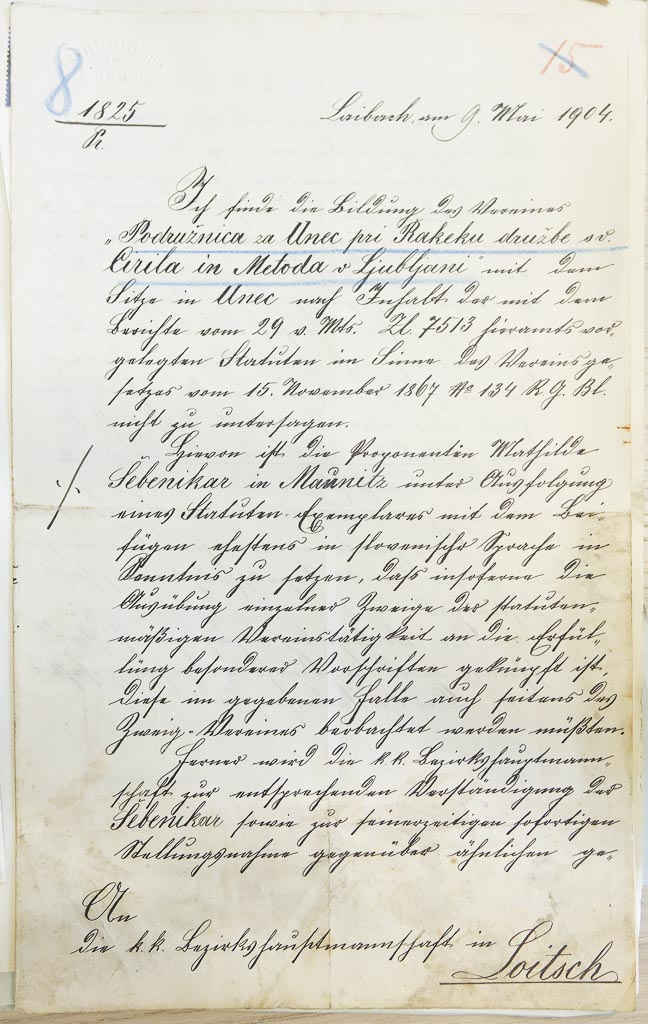 8
15
1825
Pr.
Laibach, am 9. Mai 1904.
Ich finde die Bildung des Vereines
„Podružnica za Unec pri Rakeku družbe sv.
Cirila in Metoda v Ljubljani“ mit dem
Sitze in Unec nach Inhalt der mit dem
Berichte vom 29 v. Mts. Zl. 7513 hieramts vor-
gelegten Statuten im Sinne des Vereinsge-
setzes vom 15. November 1867 No 134 R. G. Bl.
nicht zu untersagen.
Hievon ist die Proponentin Mathilde
Šebenikar in Maunitz unter Ausfolgung
eines Statuten-Exemplares mit dem Bei-
fügen ehestens in slovenischer Sprache in
Kenntnis zu setzen, dass insoferne die
Ausübung einzelner Zweige der statuten-
mäßigen Vereinstätigkeit an die Erfül-
lung besonderer Vorschriften geknüpft ist,
diese im gegebenen Falle auch seitens des
Zweig-Vereines beobachtet werden müßten.
Ferner wird die k. k. Bezirkshauptmann-
schaft zur entsprechenden Verständigung der
Šebenikar sowie zur seinerzeitigen sofortigen
Stellungnahme gegenüber ähnlichen ge-
An
die k. k. Bezirkshauptmannschaft in
Loitsch